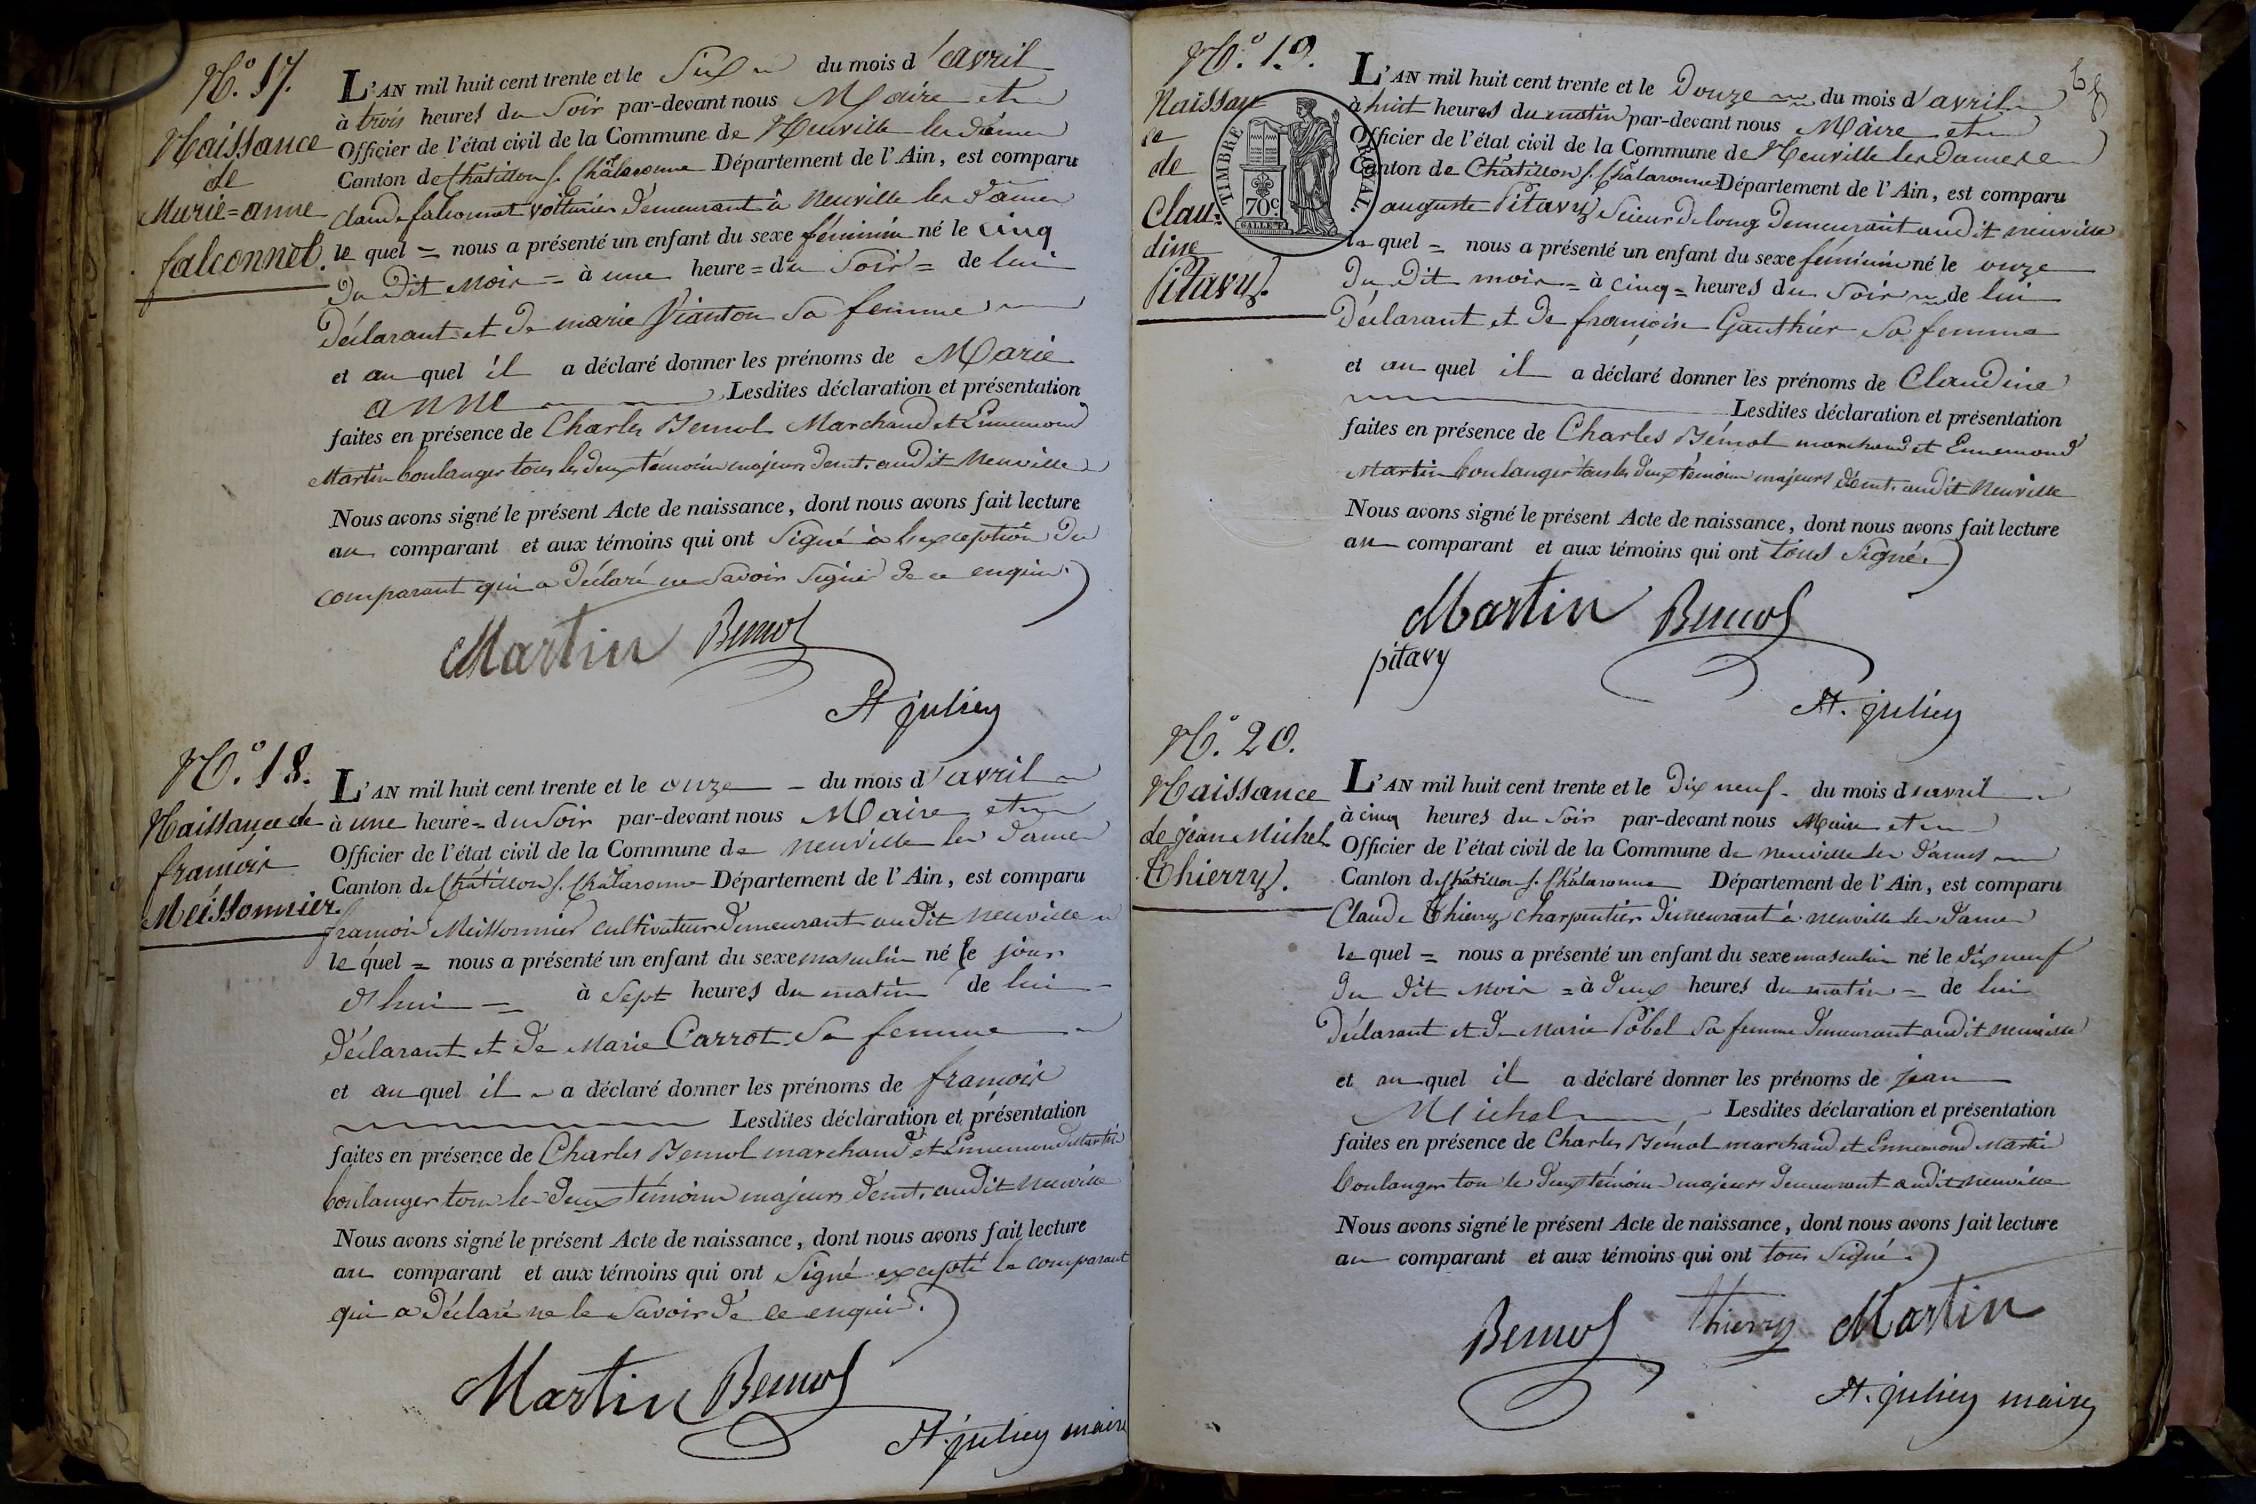 N.º 17.
Naissance
de
Marie=anne
falconnet.
L'AN mil huit cent trente et le Six du mois d'avril
à trois heures du Soir par-devant nous Maire et
Officier de l'état civil de la Commune de Neuville les dames
Canton de Châtillon s. Châlaronne Département de l'Ain, est comparu
Claude falconnet voiturier demeurant à Neuville les dames
le quel = nous a présenté un enfant du sexe féminin né le cinq
du dit Mois = à une heure = du Soir = de lui
déclarant et de marie Vianton Sa femme
et au quel il a déclaré donner les prénoms de Marie
anne Lesdites déclaration et présentation
faites en présence de Charles Bemol Marchand et Ennemond
Martin boulanger tous les deux témoins majeurs demt. audit Neuville
Nous avons signé le présent Acte de naissance, dont nous avons fait lecture
au comparant et aux témoins qui ont Signé à l'exception du
comparant qui a déclaré ne Savoir Signé de ce enquis.
Martin Bemol
St julien
N.º 18.
Naissance de
francois
Meissonnier.
L'AN mil huit cent trente et le onze du mois d'avril
à une heure = du Soir par-devant nous Maire et
Officier de l'état civil de la Commune de neuville les dames
Canton de Châtillon s. Châlaronne Département de l'Ain, est comparu
francois Meissonnier cultivateur demeurant audit neuville
le quel = nous a présenté un enfant du sexe masculin né le jour
d'hui = à Sept heures du matin de lui
déclarant et de Marie Carrot Sa femme
et au quel il a déclaré donner les prénoms de francois
Lesdites déclaration et présentation
faites en présence de Charles Bemol marchand et Ennemond Martin
boulanger tous les deux témoins majeurs demt. audit Neuville
Nous avons signé le présent Acte de naissance, dont nous avons fait lecture
au comparant et aux témoins qui ont Signé excepté le comparant
qui a déclaré ne le Savoir de ce enquis.
Martin Bemol
St. julien maire
N.º 19.
Naissan
ce
de
Clau=
dine
Pitavy.
TIMBRE ROYAL.
70c
L'AN mil huit cent trente et le Douze du mois d'avril
à huit heures du matin par-devant nous Maire et
Officier de l'état civil de la Commune de Neuville les Dames
Canton de Châtillon s. Châlaronne Département de l'Ain, est comparu
auguste Pitavy Scieur de long demeurant audit neuville
le quel = nous a présenté un enfant du sexe féminin né le onze
du dit mois = à cinq = heures du Soir de lui
déclarant et de françoise Gauthier Sa femme
et au quel il a déclaré donner les prénoms de Claudine
Lesdites déclaration et présentation
faites en présence de Charles Bémol marchand et Ennemond
Martin boulanger tous les deux témoins majeurs demt. audit Neuville
Nous avons signé le présent Acte de naissance, dont nous avons fait lecture
au comparant et aux témoins qui ont tous Signé.
Martin Bemol
pitavy
St. julien
N.º 20.
Naissance
de jean Michel
Thierry.
L'AN mil huit cent trente et le Dix neuf du mois d'avril
à cinq heures du Soir par-devant nous Maire et
Officier de l'état civil de la Commune de neuville les dames
Canton de Châtillon s. Châlaronne Département de l'Ain, est comparu
Claude Thierry charpentier demeurant à neuville les dames
le quel = nous a présenté un enfant du sexe masculin né le dix neuf
du dit Mois = à deux heures du matin = de lui
déclarant et de Marie Pobel Sa femme demeurant audit neuville
et au quel il a déclaré donner les prénoms de jean
Michel Lesdites déclaration et présentation
faites en présence de Charles Bémol marchand et Ennemond Martin
boulanger tous les deux témoins majeurs demeurant audit neuville
Nous avons signé le présent Acte de naissance, dont nous avons fait lecture
au comparant et aux témoins qui ont tous Signé.
Bemol Thierry Martin
St. julien maire